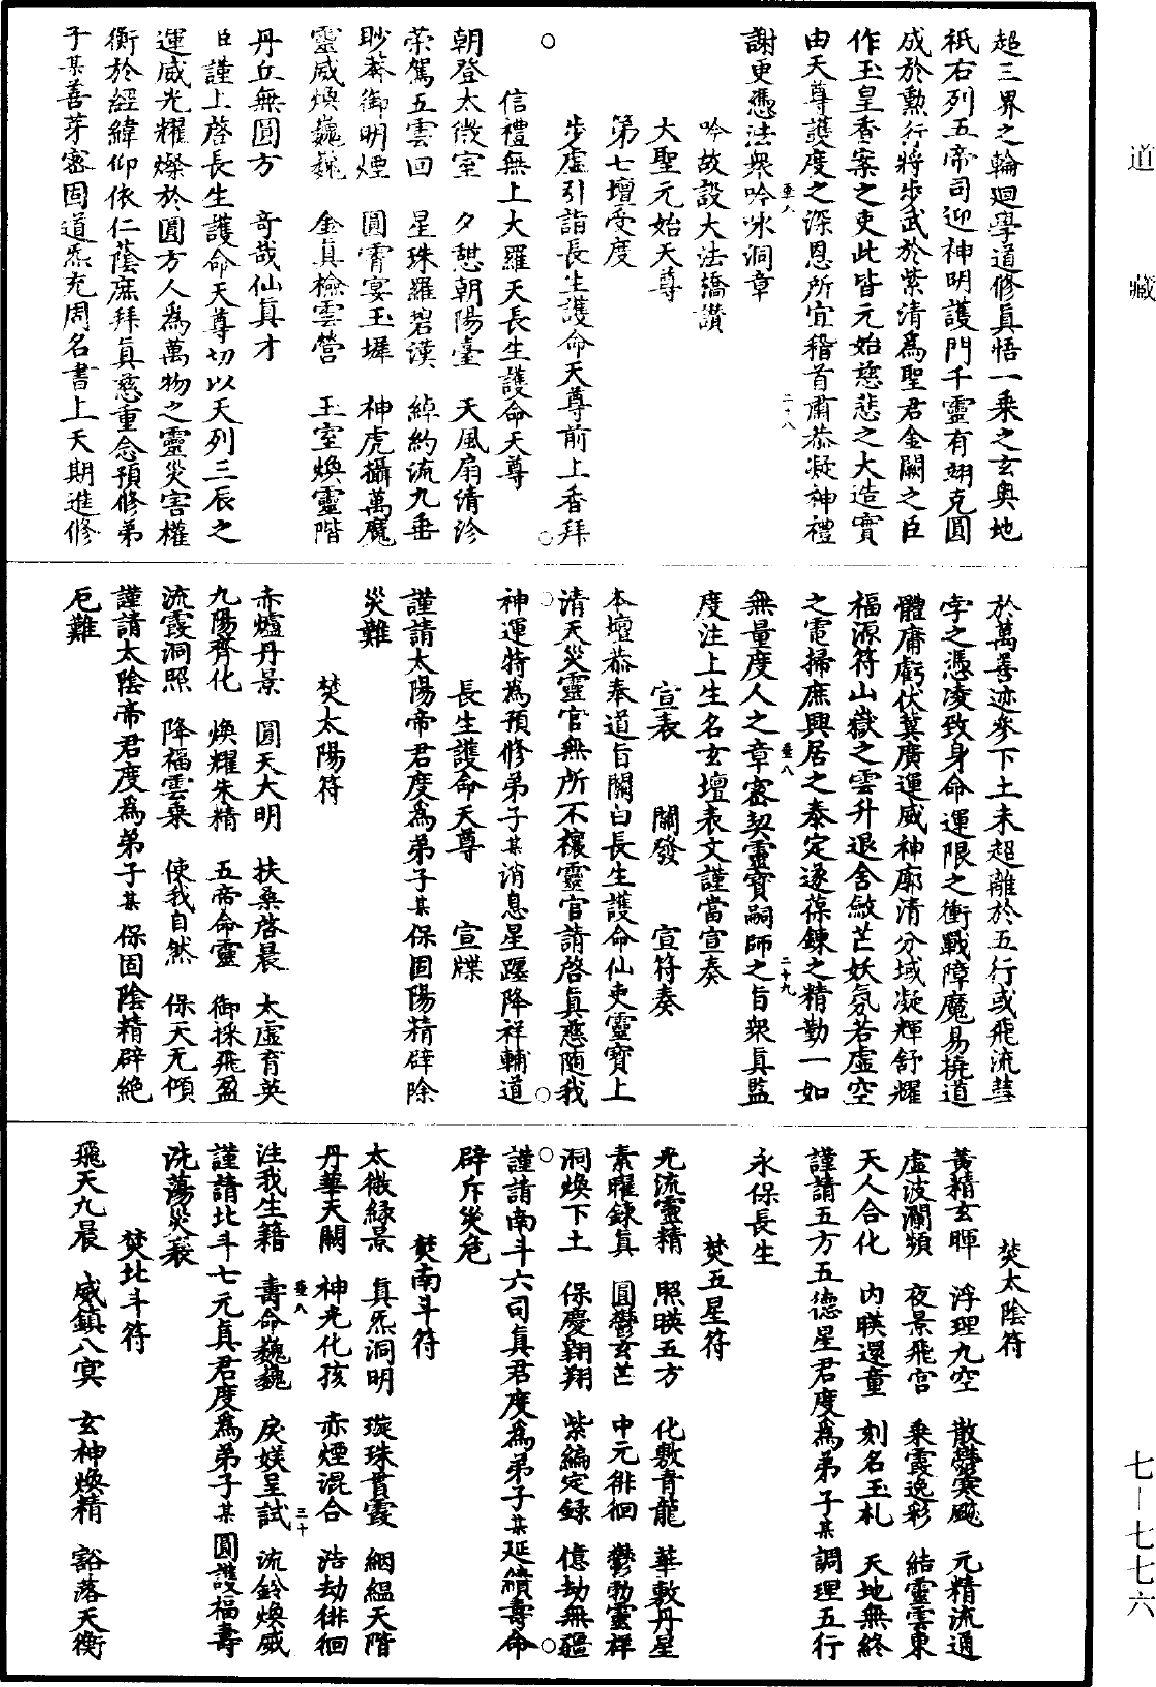 道藏
超三界之輪迴學道修眞悟一乘之玄奧地
祇右列五帝司迎神明護門千靈有翊克圓
成於勲行將步武於紫清爲聖君金闕之臣
作玉皇香案之吏此皆元始慈悲之大造實
由天尊護度之深恩所宜稽首肅恭凝神禮
謝更憑法衆吟咏洞章
吟故設大法橋讚
大聖元始天尊
第七壇受度
步虛引詣長生護命天尊前上香拜
信禮無上大羅天長生護命天尊
朝登太微室 夕憩朝陽臺 天風扇清泠
荣駕五雲回 星珠羅碧漢 綽約流九垂
眇莽御明煙 圓霄宴玉墀 神虎攝萬魔
靈威煥巍巍 金眞檢雲營 玉室煥靈階
丹丘無圓方 奇哉仙眞才
臣謹上啓長生護命天尊切以天列三辰之
運威光耀燦於圓方人爲萬物之靈災害權
衡於經緯仰依仁蔭庶拜眞慈重念預修弟
子某善芽密固道炁充周名書上天期進修
於萬善迹參下土未超離於五行或飛流彗
孛之憑凌致身命運限之衝戰障魔易撓道
體庸虧伏冀廣運威神廓清分域凝輝舒耀
福源符山嶽之雲升退舍斂芒妖氛若虛空
之電掃庶興居之泰定遂葆鍊之精勤一如
無量度人之章密契靈寶嗣師之旨衆眞監
度注上生名玄壇表文謹當宣奏
宣表 關發 宣符奏
本壇恭奉道旨關白長生護命仙吏靈寶上
清天災靈官無所不禳靈官請啓眞慈隨我
神運特爲預修弟子某消息星躔降祥輔道
長生護命天尊 宣牒
謹請太陽帝君度爲弟子某保固陽精辟除
災難
焚太陽符
赤爐丹景 圓天大明 扶桑啓晨 太虛育英
九陽齊化 煥耀朱精 五帝命靈 御採飛盈
流霞洞照 降福雲乘 使我自然 保天无傾
謹請太陰帝君度爲弟子某保固陰精辟絶
厄難
焚太陰符
黃精玄暉 浮理九空 散鬱寒飈 元精流通
虛波瀾頻 夜景飛宮 乘霞逸彩 結靈雲東
天人合化 内暎還童 刻名玉札 天地無終
謹請五方五德星君度爲弟子某調理五行
永保長生
焚五星符
光流靈精 照暎五方 化敷青龍 華敷丹星
素曜鍊眞 圓鬱玄芒 中元徘徊 鬱勃靈祥
洞煥下土 保慶翱翔 紫編定録 億劫無疆
謹請南斗六司眞君度爲弟子某延續壽命
辟斥災危
焚南斗符
太微緑景 眞炁洞明 璇珠貫霞 絪緼天階
丹華天關 神光化孩 赤煙混合 浩劫徘徊
注我生籍 壽命巍巍 戾媄呈試 流鈴煥威
謹請北斗七元眞君度爲弟子某圓護福壽
洗蕩災衰
焚北斗符
飛天九晨 威鎮八㝠 玄神煥精 豁落天衡
七—七七六